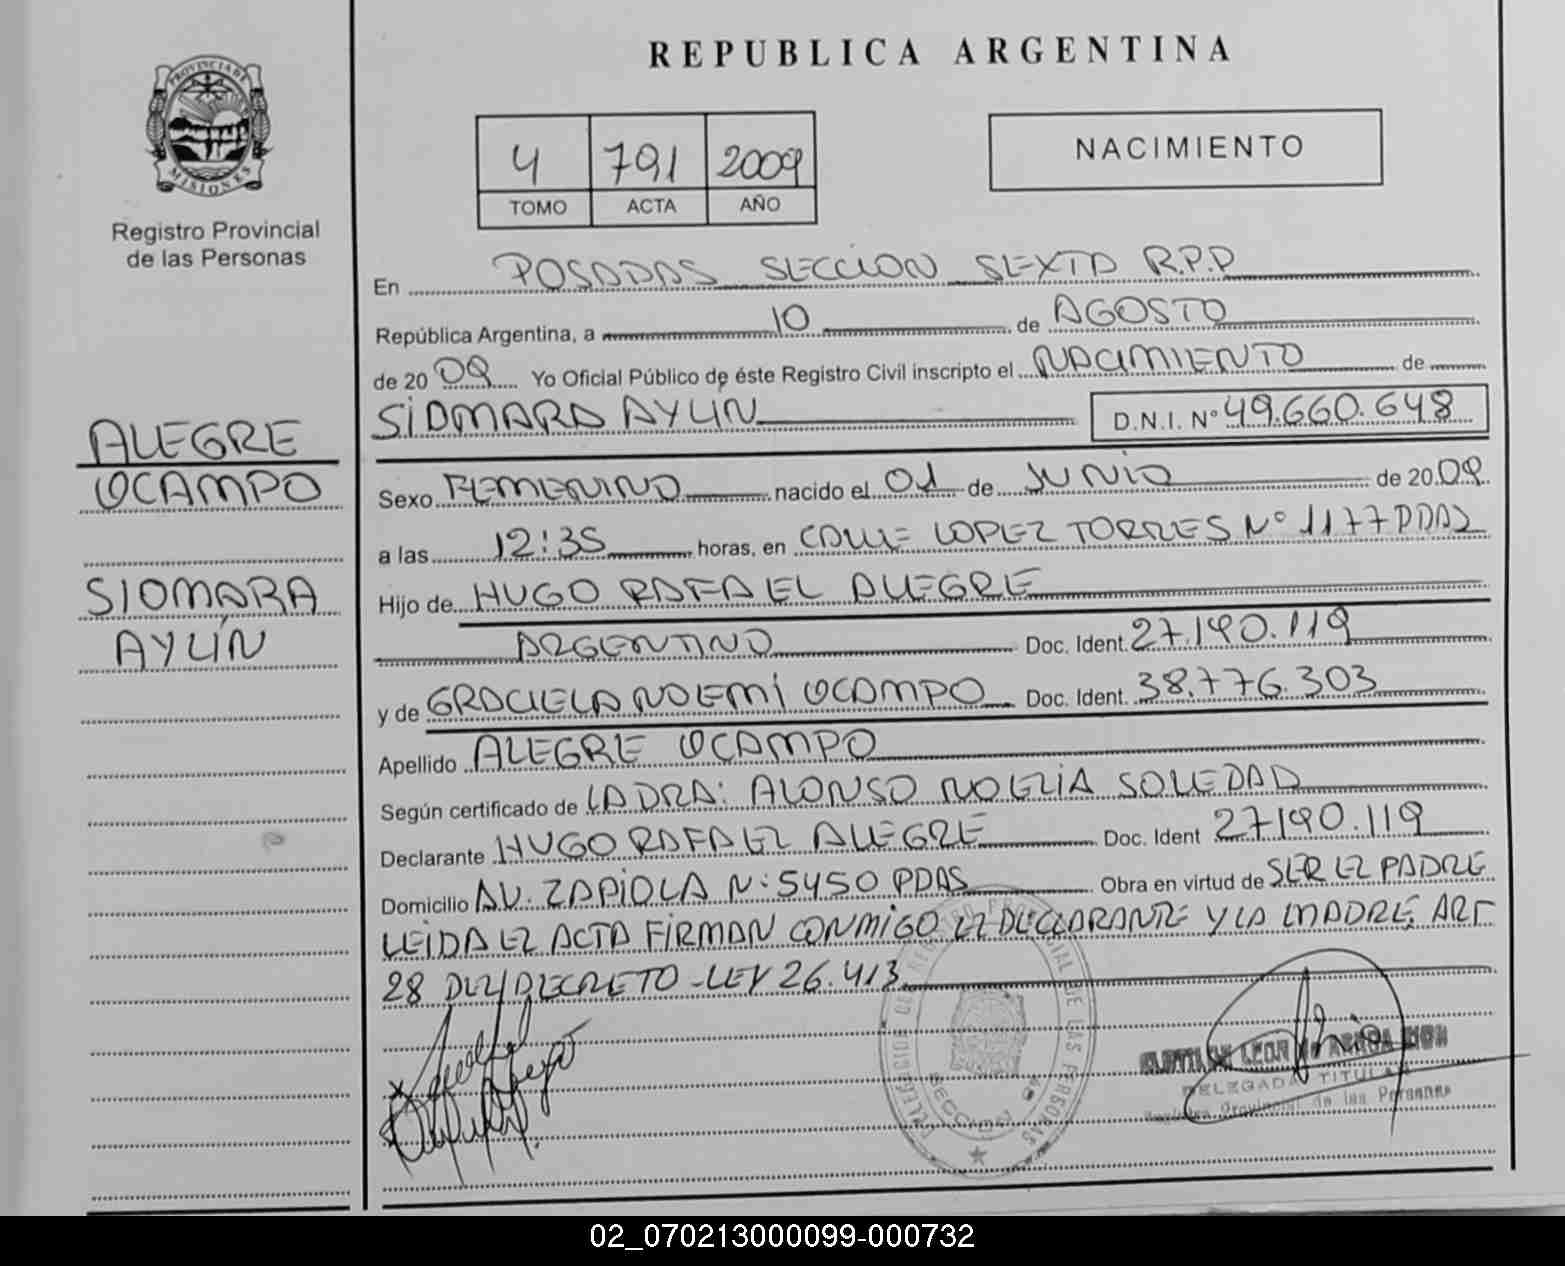 REPUBLICA ARGENTINA
PROVINCIA DE
MISIONES
Registro Provincial
de las Personas
4 791 2009
TOMO ACTA AÑO
NACIMIENTO
En POSADAS SECCION SEXTA R.P.P
República Argentina, a 10 de AGOSTO
de 20 09 Yo Oficial Público de éste Registro Civil inscripto el NACIMIENTO de
SIOMARA AYLIN D.N.I. Nº 49.660.648
ALEGRE
OCAMPO
SIOMARA
AYLÍN
Sexo FEMENINO nacido el 01 de JUNIO de 20 09
a las 12:35 horas, en CALLE LOPEZ TORRES Nº 1177 PDAS
Hijo de HUGO RAFAEL ALEGRE
ARGENTINO Doc. Ident. 27.190.119
y de GRACIELA NOEMÍ OCAMPO Doc. Ident. 38.776.303
Apellido ALEGRE OCAMPO
Según certificado de LA DRA: ALONSO NOELIA SOLEDAD
Declarante HUGO RAFAEL ALEGRE Doc. Ident 27190.119
Domicilio AV. ZAPIOLA N: 5450 PDAS Obra en virtud de SER EL PADRE
LEIDA EL ACTA FIRMAN CONMIGO EL DECLARANTE Y LA MADRE. ART
28 DEL DECRETO-LEY 26.413
DELEGACION DEL REGISTRO PROVINCIAL DE LAS PERSONAS
SECCION
DELEGADA TITULAR
Registro Provincial de las Personas
02_070213000099-000732